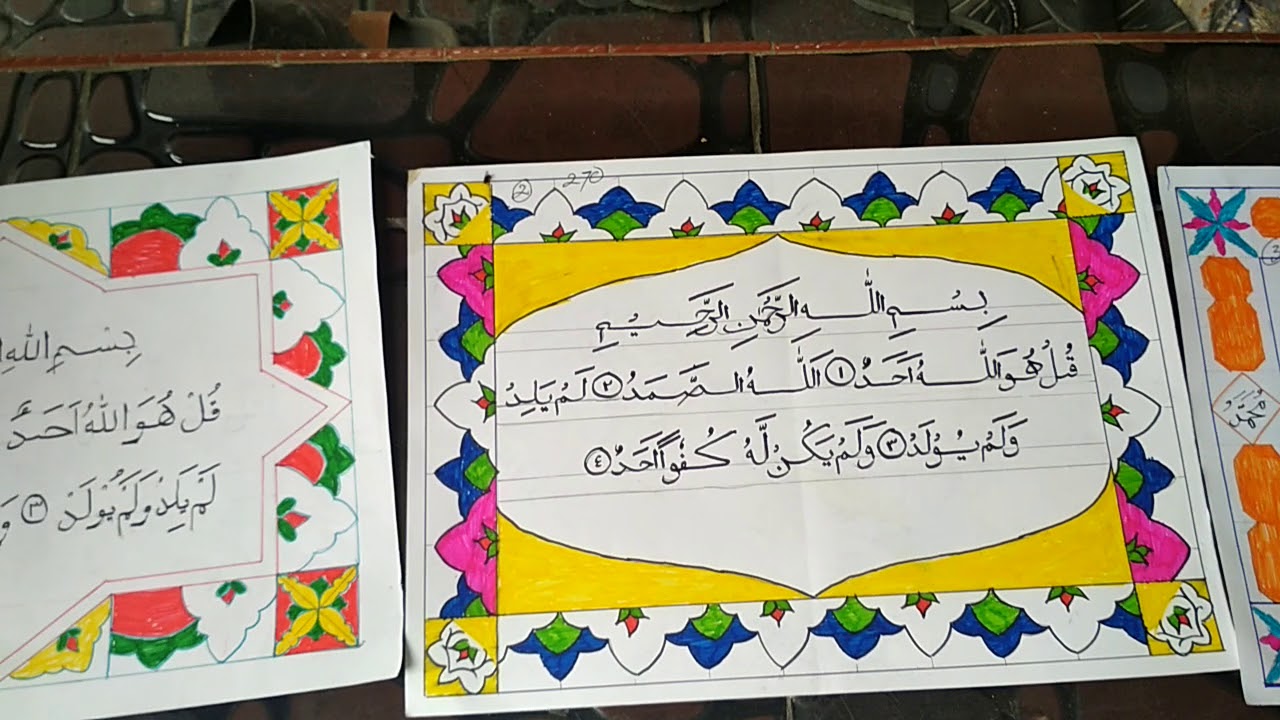 بِسْمِ اللّٰهِ
قُلْ هُوَ اللّٰهُ اَحَدٌ
لَمْ يَلِدْ وَلَمْ يُوْلَدْ ٣
٢ 270
بِسْمِ اللّٰهِ الرَّحْمٰنِ الرَّحِيْمِ
قُلْ هُوَ اللّٰهُ اَحَدٌ ١ اَللّٰهُ الصَّمَدُ ٢ لَمْ يَلِدْ
وَلَمْ يُوْلَدْ ٣ وَلَمْ يَكُنْ لَّهٗ كُفُوًا اَحَدٌ ٤
مُحَمَّدٌ